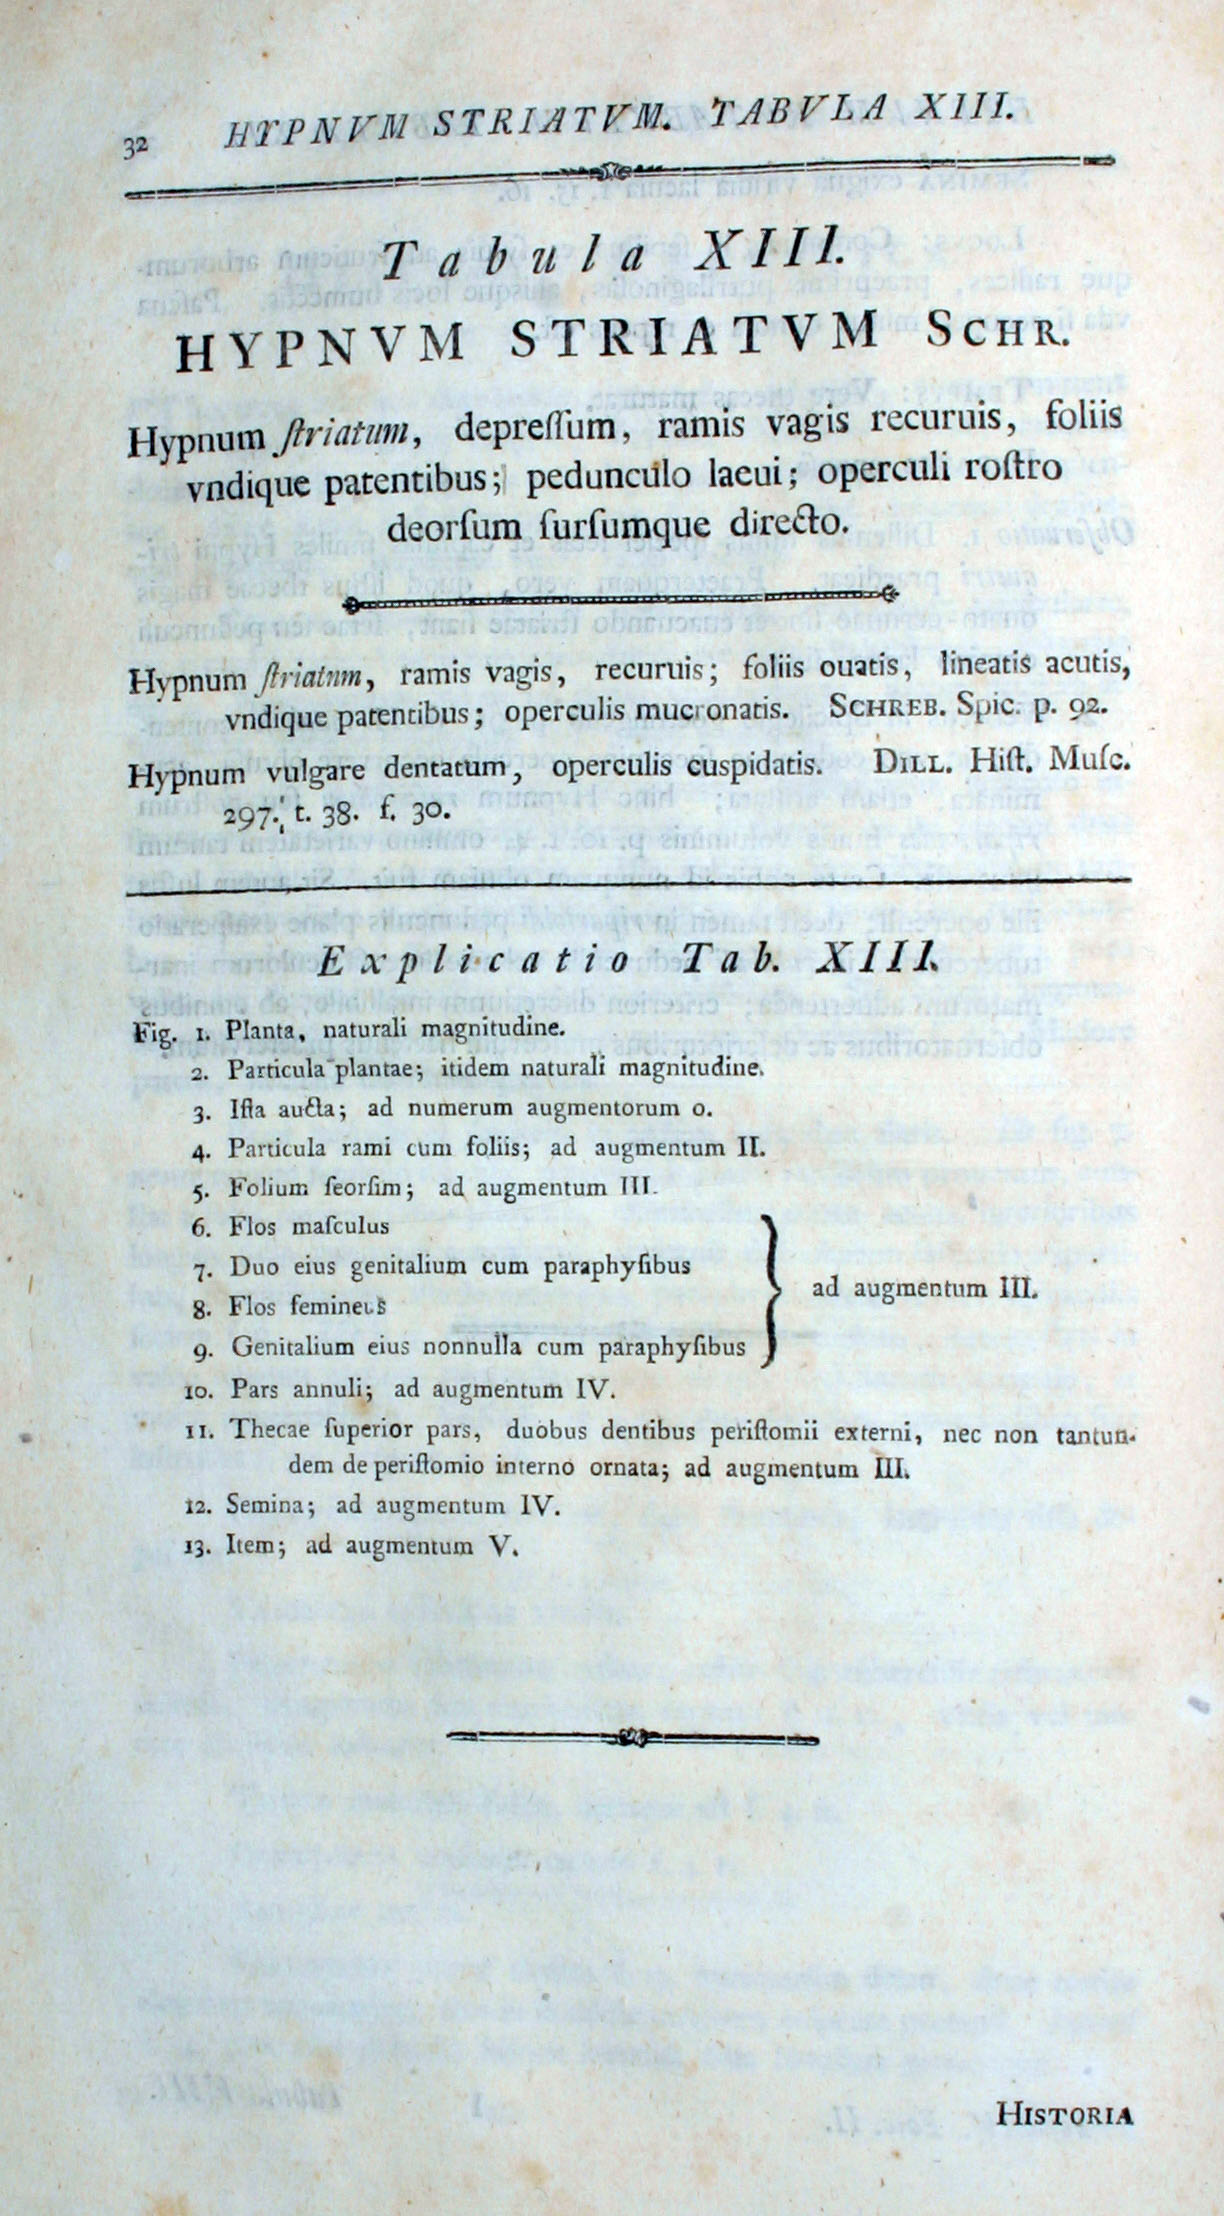 32 HYPNVM STRIATVM. TABVLA XIII.
Tabula XIII.
HYPNVM STRIATVM SCHR.
Hypnum ſtriatum, depreſſum, ramis vagis recuruis, foliis
vndique patentibus; pedunculo laeui; operculi roſtro
deorſum ſurſumque directo.
Hypnum ſtriatum, ramis vagis, recuruis; foliis ouatis, lineatis acutis,
vndique patentibus; operculis mucronatis. SCHREB. Spic. p. 92.
Hypnum vulgare dentatum, operculis cuspidatis. DILL. Hiſt. Muſc.
297. t. 38. f. 30.
Explicatio Tab. XIII.
Fig. 1. Planta, naturali magnitudine.
2. Particula plantae; itidem naturali magnitudine.
3. Iſta aucta; ad numerum augmentorum 0.
4. Particula rami cum foliis; ad augmentum II.
5. Folium ſeorſim; ad augmentum III.
6. Flos maſculus
7. Duo eius genitalium cum paraphyſibus
8. Flos femineus
9. Genitalium eius nonnulla cum paraphyſibus
ad augmentum III.
10. Pars annuli; ad augmentum IV.
11. Thecae ſuperior pars, duobus dentibus periſtomii externi, nec non tantun-
dem de periſtomio interno ornata; ad augmentum III.
12. Semina; ad augmentum IV.
13. Item; ad augmentum V.
HISTORIA